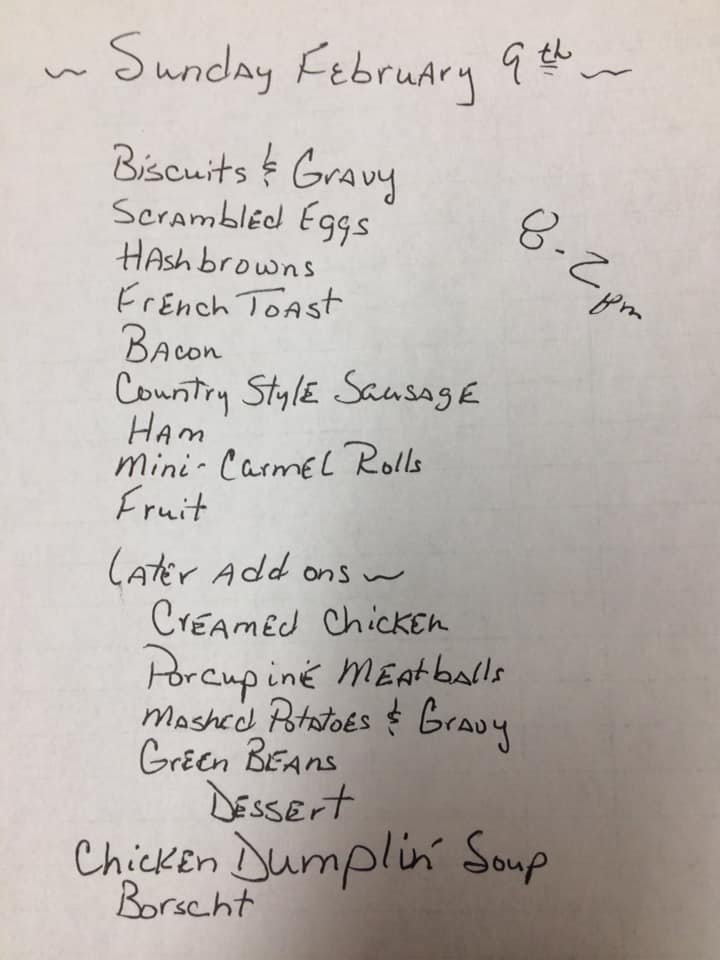 ~ Sunday February 9th ~
Biscuits & Gravy
Scrambled Eggs
8-2pm
Hashbrowns
French Toast
Bacon
Country Style Sausage
Ham
Mini-Carmel Rolls
Fruit
Later Add ons ~
Creamed Chicken
Porcupine Meatballs
Mashed Potatoes & Gravy
Green Beans
Dessert
Chicken Dumplin' Soup
Borscht